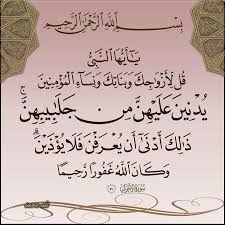 بِسْمِ اللَّهِ الرَّحْمَٰنِ الرَّحِيمِ
يَا أَيُّهَا النَّبِيُّ
قُل لِّأَزْوَاجِكَ وَبَنَاتِكَ وَنِسَاءِ الْمُؤْمِنِينَ
يُدْنِينَ عَلَيْهِنَّ مِن جَلَابِيبِهِنَّ
ذَٰلِكَ أَدْنَىٰ أَن يُعْرَفْنَ فَلَا يُؤْذَيْنَ
وَكَانَ اللَّهُ غَفُورًا رَّحِيمًا